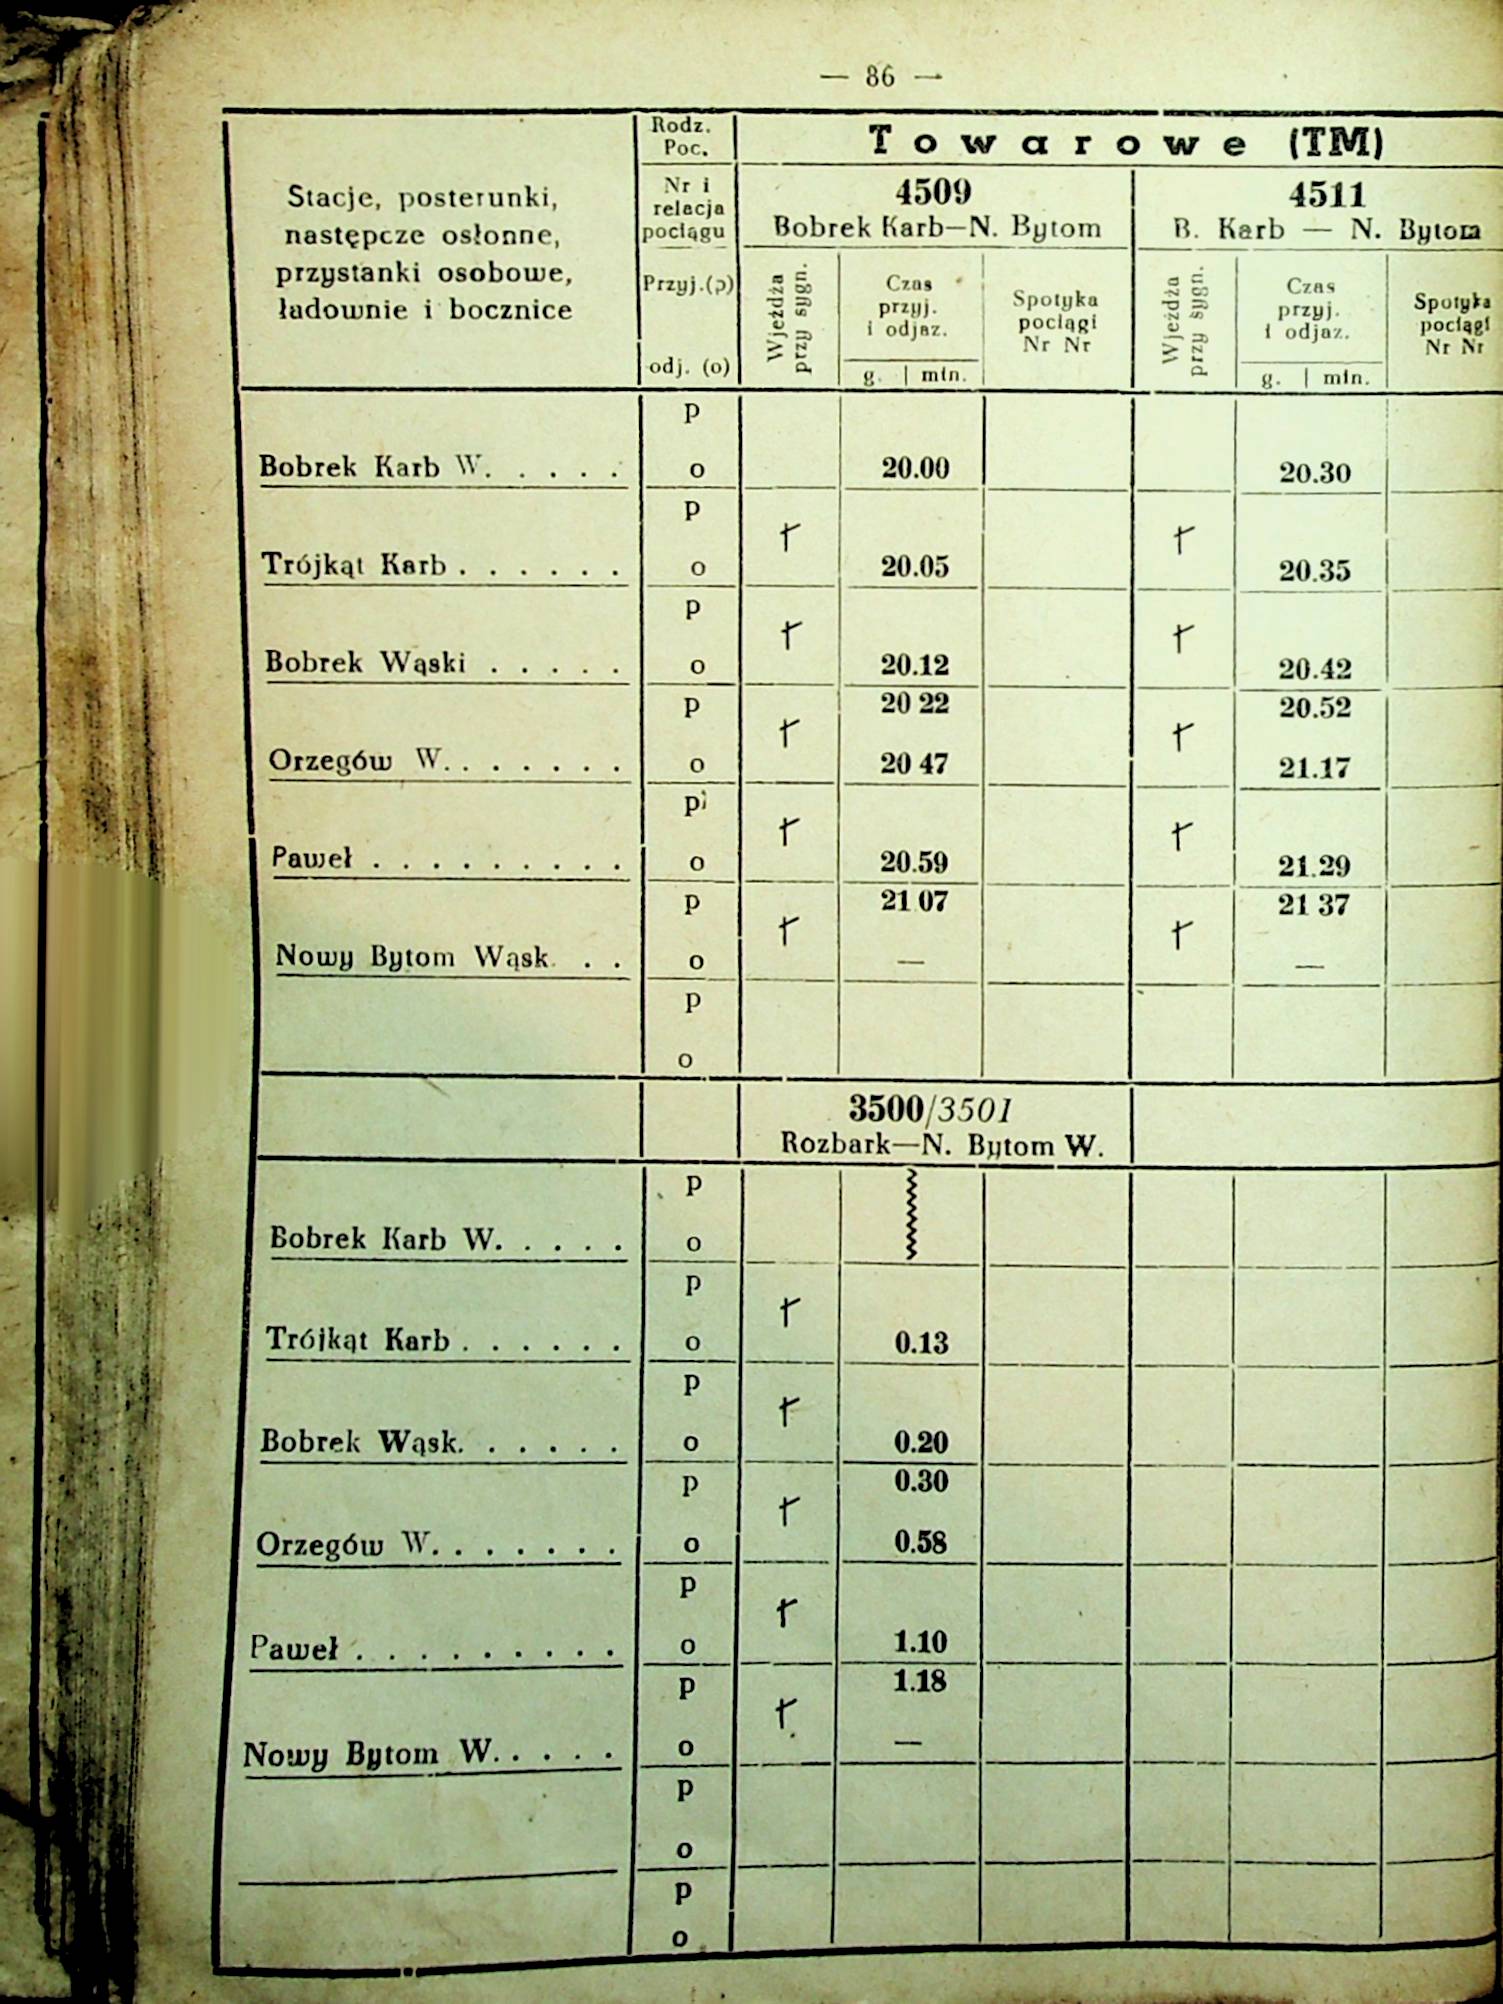 — 86 —
Rodz. Poc.
Towarowe (TM)
Stacje, posterunki,
następcze osłonne,
przystanki osobowe,
ładownie i bocznice
Nr i
relacja
pociągu
Przyj.(p)
odj. (o)
4509
Bobrek Karb—N. Bytom
4511
B. Karb — N. Bytom
Wjeżdża
przy sygn.
Czas
przyj.
i odjaz.
g. | min.
Spotyka
pociągi
Nr Nr
Wjeżdża
przy sygn.
Czas
przyj.
i odjaz.
g. | min.
Spotyka
pociągi
Nr Nr
p
Bobrek Karb W. . . . . o 20.00 20.30
p
Trójkąt Karb . . . . . . o 20.05 20.35
p
Bobrek Wąski . . . . . o 20.12 20.42
p 20 22 20.52
Orzegów W. . . . . . . o 20 47 21.17
p
Paweł . . . . . . . . . o 20.59 21.29
p 21 07 21 37
Nowy Bytom Wąsk. . . o — —
p
o
3500/3501
Rozbark—N. Bytom W.
p
Bobrek Karb W. . . . . o
p
Trójkąt Karb . . . . . . o 0.13
p
Bobrek Wąsk. . . . . . o 0.20
p 0.30
Orzegów W. . . . . . . o 0.58
p
Paweł . . . . . . . . . o 1.10
p 1.18
Nowy Bytom W. . . . . o —
p
o
p
o